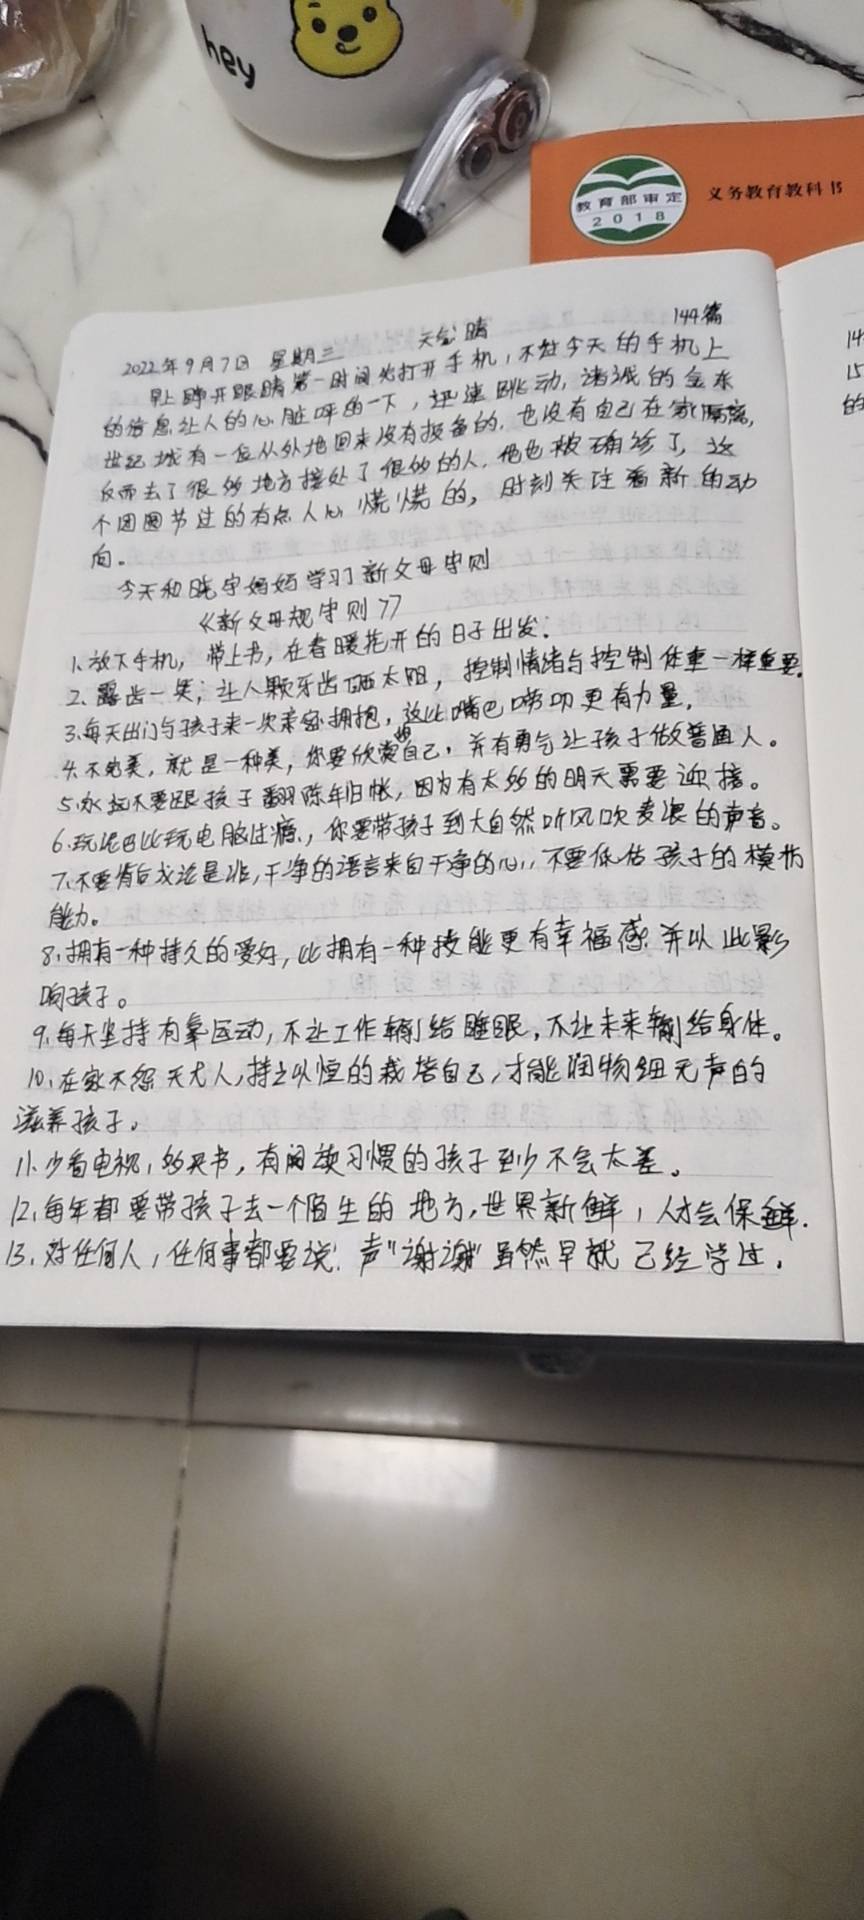 hey
教育部审定
2018
义务教育教科书
2022年9月7日 星期三 天气:晴 144篇
早上睁开眼睛第一时间先打开手机,不过今天的手机上
的信息让人的心脏呼的一下,迅速跳动,诸城的金东
世纪城有一位从外地回来没有报备的,也没有自己在家隔离,
反而去了很多地方接处了很多的人,他也被确诊了,这
个团圆节过的有点人心慌慌的,时刻关注着新的动
向。
今天和晓宇妈妈学习了新父母守则
《新父母规守则》
1、放下手机,带上书,在春暖花开的日子出发:
2、露齿一笑,让八颗牙齿晒太阳,控制情绪与控制体重一样重要。
3、每天出门与孩子来一次亲密拥抱,这比嘴巴唠叨更有力量,
4、不完美,就是一种美,你要欣赏自己,并有勇气让孩子做普通人。
5、永远不要跟孩子翻陈年旧帐,因为有太多的明天需要迎接。
6、玩泥巴比玩电脑过瘾,你要带孩子到大自然听风吹麦浪的声音。
7、不要背后议论是非,干净的语言来自干净的心,不要低估孩子的模仿
能力。
8、拥有一种持久的爱好,比拥有一种技能更有幸福感,并以此影
响孩子。
9、每天坚持有氧运动,不让工作输给睡眠,不让未来输给身体。
10、在家不怨天尤人,持之以恒的栽培自己,才能润物细无声的
滋养孩子。
11、少看电视,多买书,有阅读习惯的孩子至少不会太差。
12、每年都要带孩子去一个陌生的地方,世界新鲜,人才会保鲜.
13、对任何人,任何事都要说声"谢谢"虽然早就已经学过.
14
15
的